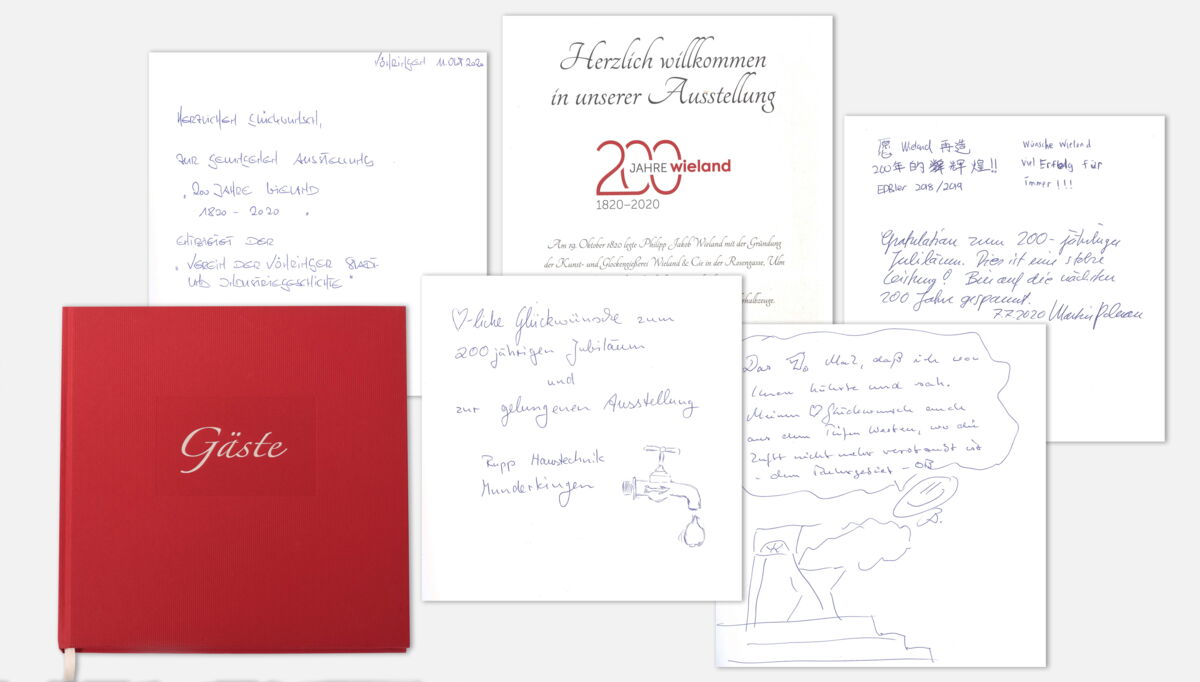 Vöhringen 11.Okt 2020
Herzlichen Glückwunsch,
zur gelungenen Ausstellung
"200 Jahre Wieland
1820 - 2020 "
der
"Verein der Vöhringer Stadt-
und Industriegeschichte"
Herzlich willkommen
in unserer Ausstellung
200 JAHRE wieland
1820–2020
Am 19. Oktober 1820 legte Philipp Jakob Wieland mit der Gründung
der Kunst- und Glockengießerei Wieland & Cie in der Rosengasse, Ulm
愿 Wieland 再造
200年的 辉煌!!
2018/2019
Wünsche Wieland
viel Erfolg für
immer !!!
Gratulation zum 200-jährigen
Jubiläum. Dies ist eine stolze
Leistung! Bin auf die nächsten
200 Jahre gespannt.
7.7.2020 Martin
Gäste
♡-liche Glückwünsche zum
200 jährigen Jubiläum
und
zur gelungenen Ausstellung
Rupp Haustechnik
Munderkingen
Das Mal, daß ich von
Ihnen hörte und sah.
Meinen ♡ Glückwunsch auch
aus dem tiefen Westen, wo die
Luft nicht mehr verstaubt ist
- dem Ruhrgebiet -